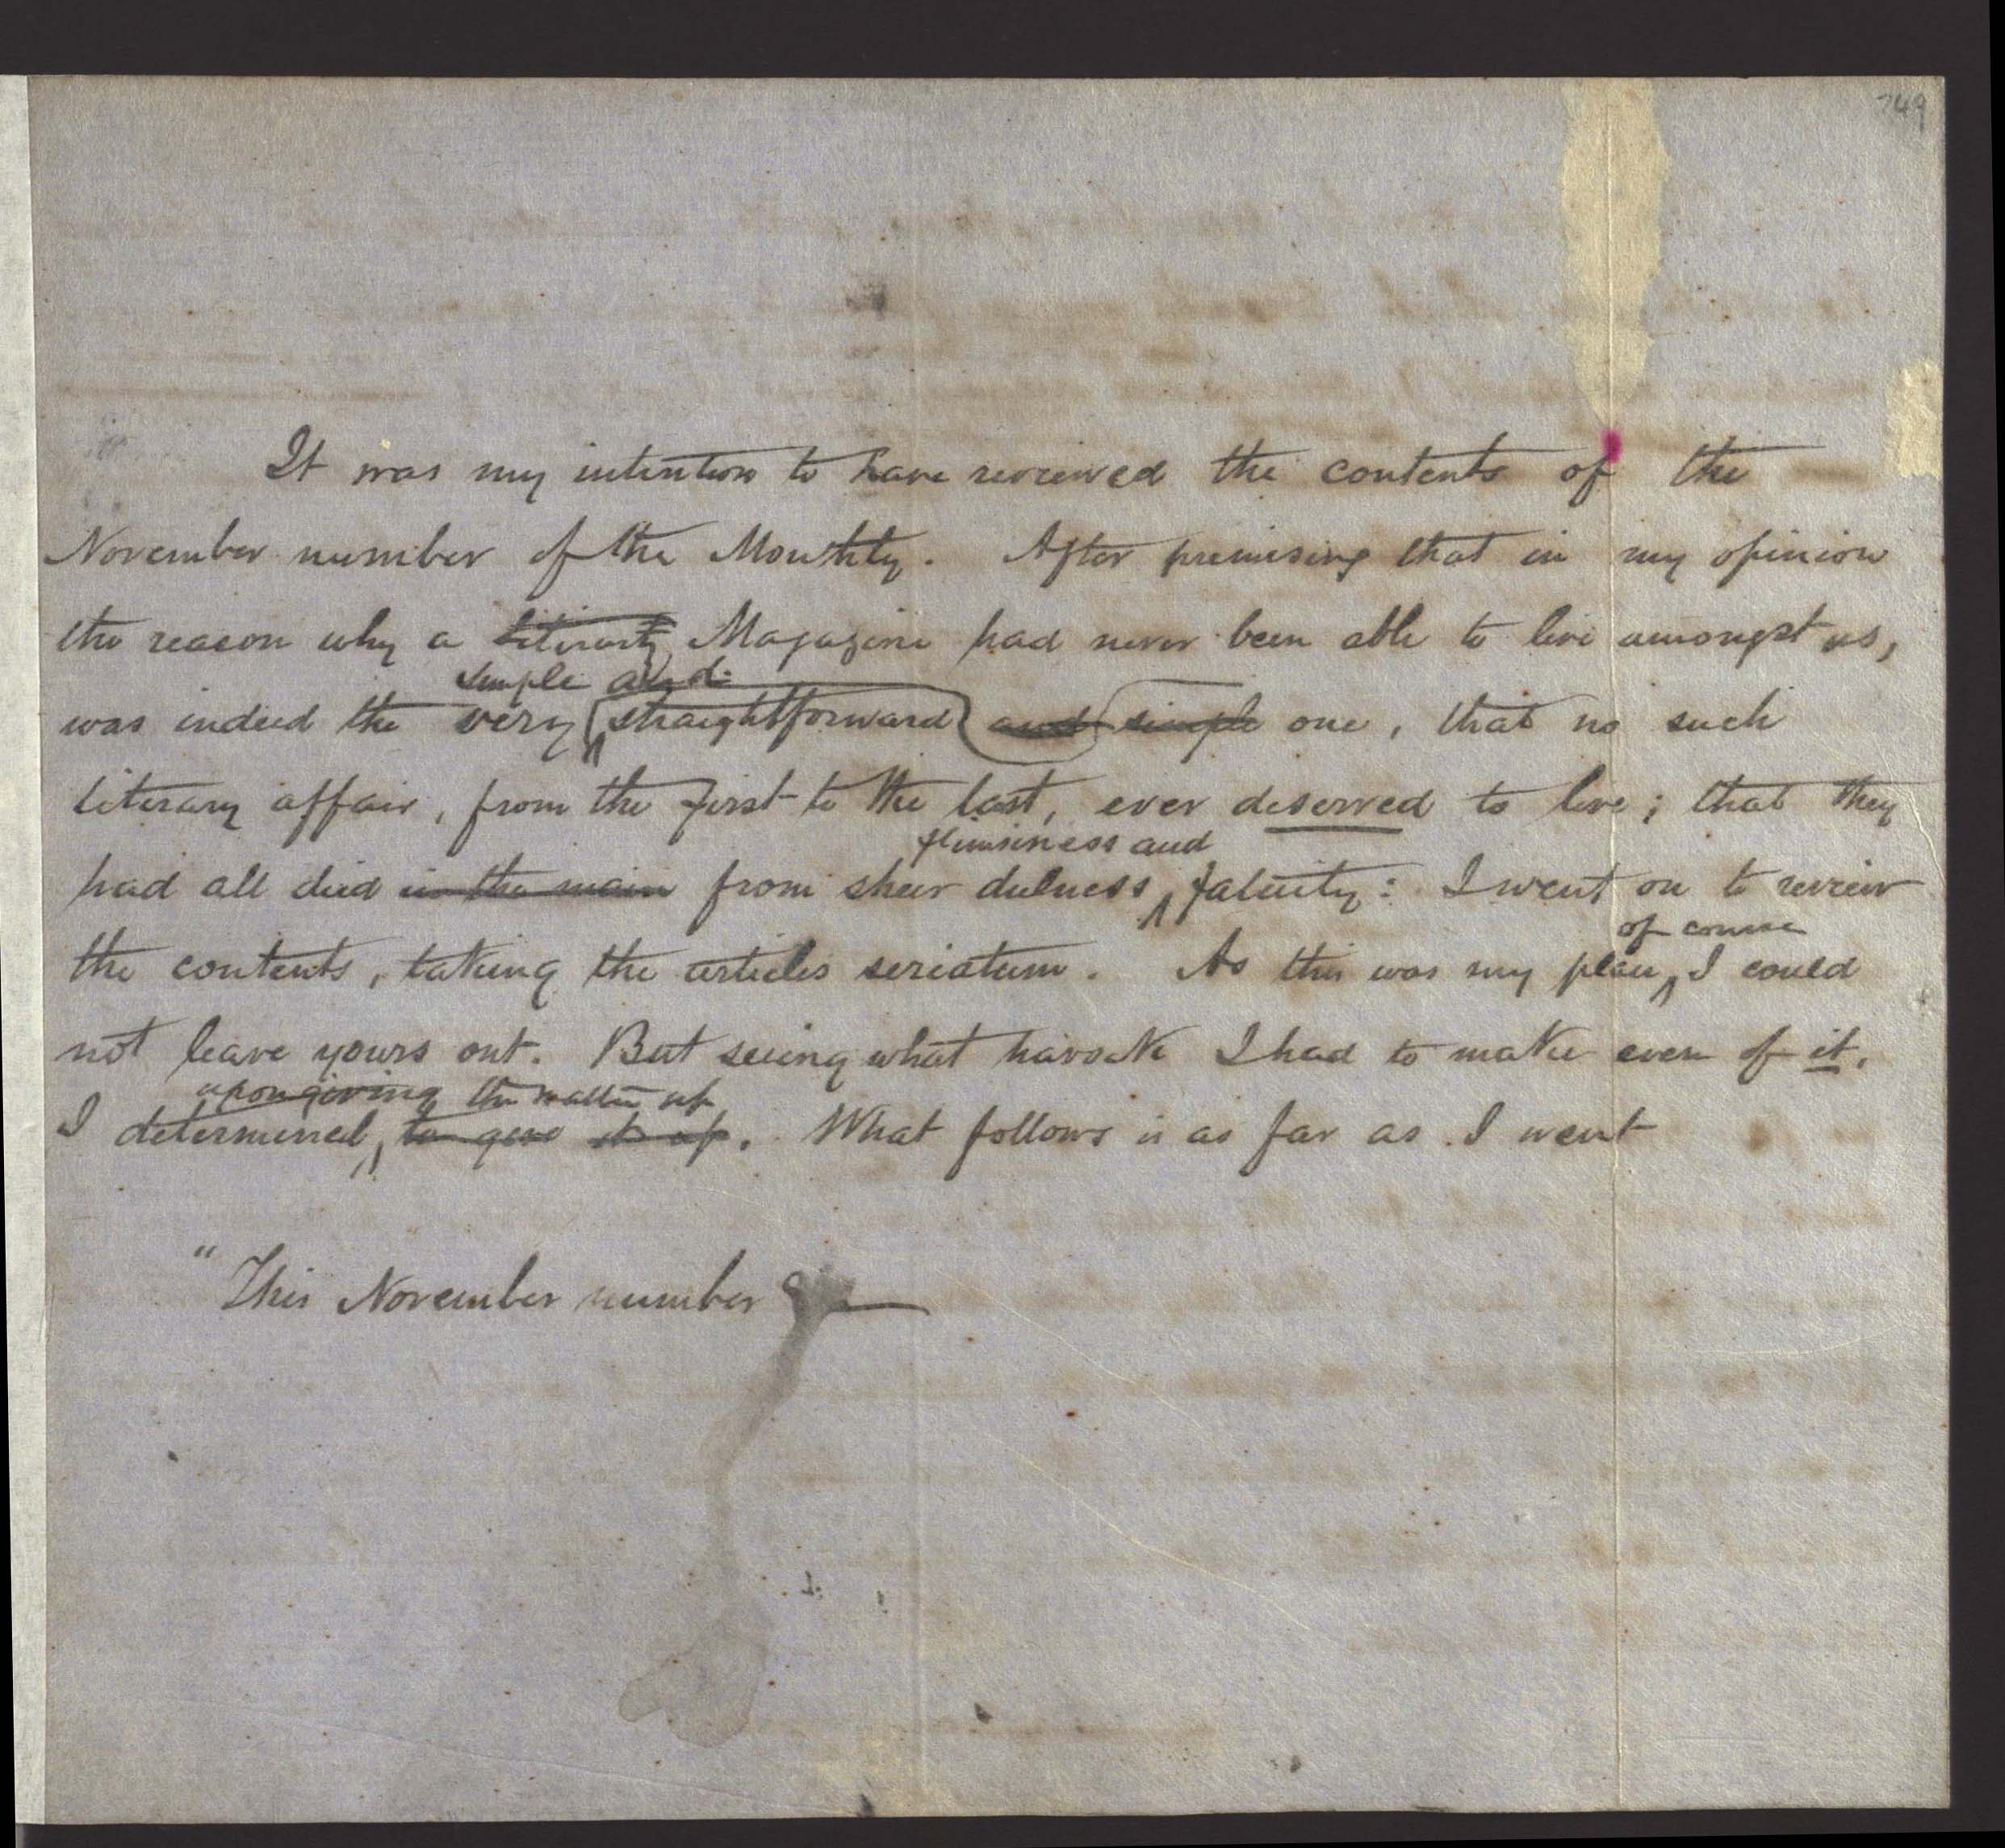 749
It was my intention to have reviewed the contents of the
November number of the Monthly. After premising that in my opinion
the reason why a literary Magazine had never been able to live amongst us,
simple and
was indeed the very straightforward and simple one, that no such
literary affair, from the first to the last, ever deserved to live; that they
flimsiness and
had all died in the main from sheer dulness, fatuity: I went on to review
the contents, taking the articles seriatum. As this was my plan, I could
of course
not leave yours out. But seeing what havock I had to make even of it,
upon giving the matter up
I determined, to give it up. What follows is as far as I went
"This November number